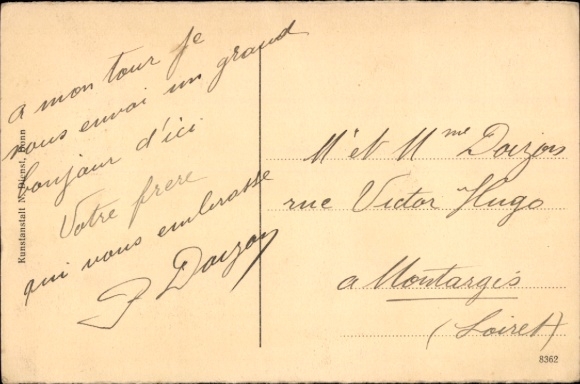 a mon tour je
vous envoi un grand
bonjour d'ici
Votre frere
qui vous embrasse
P Doizon
Mr et Mme Doizon
rue Victor Hugo
a Montargis
(Loiret)
Kunstanstalt N. Dienst, Bonn
8362